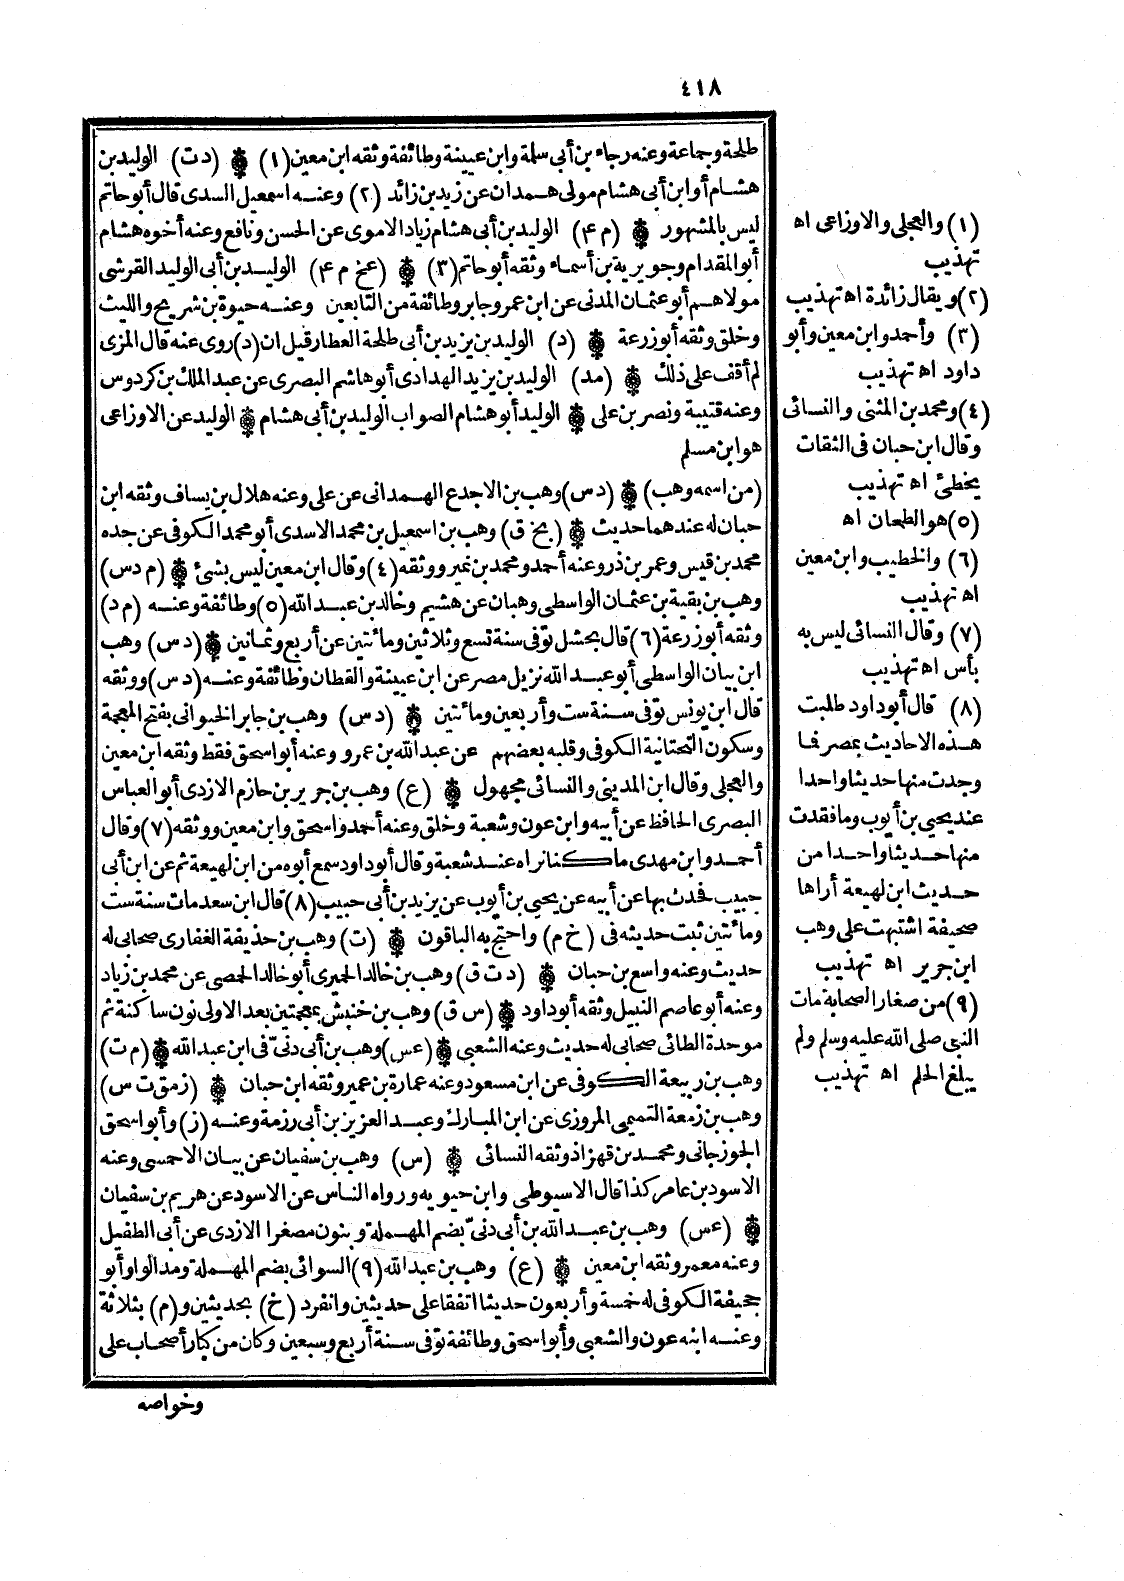 ٤١٨
طلحة وجماعة وعنه رجاء بن أبى سلمة وابن عيينة وطائفة وثقه ابن معين (١) ۞ (د ت) الوليد بن
هشام أو ابن أبى هشام مولى همدان عن زيد بن زائد (٢) وعنه اسمعيل السدى قال أبو حاتم
ليس بالمشهور ۞ (م ٤) الوليد بن أبى هشام زياد الاموى عن الحسن ونافع وعنه أخوه هشام
أبو المقدام وجويرية بن أسماء وثقه أبو حاتم (٣) ۞ (عخ م ٤) الوليد بن أبى الوليد القرشى
مولاهم أبو عثمان المدنى عن ابن عمر وجابر وطائفة من التابعين وعنه حيوة بن شريح والليث
وخلق وثقه أبو زرعة ۞ (د) الوليد بن يزيد بن أبى طلحة العطار قيل ان (د) روى عنه قال المزى
لم أقف على ذلك ۞ (مد) الوليد بن يزيد الهدادى أبو هاشم البصرى عن عبد الملك بن كردوس
وعنه قتيبة ونصر بن على ۞ الوليد أبو هشام الصواب الوليد بن أبى هشام ۞ الوليد عن الاوزاعى
هو ابن مسلم
(من اسمه وهب) ۞ (د س) وهب بن الاجدع الهمدانى عن على وعنه هلال بن يساف وثقه ابن
حبان له عندهما حديث ۞ (بخ ق) وهب بن اسمعيل بن محمد الاسدى أبو محمد الكوفى عن جده
محمد بن قيس وعمر بن ذر وعنه أحمد ومحمد بن نمير ووثقه (٤) وقال ابن معين ليس بشئ ۞ (م د س)
وهب بن بقية بن عثمان الواسطى وهبان عن هشيم وخالد بن عبد الله (٥) وطائفة وعنه (م د)
وثقه أبو زرعة (٦) قال بحشل توفى سنة تسع وثلاثين ومائتين عن أربع وثمانين ۞ (د س) وهب
ابن بيان الواسطى أبو عبد الله نزيل مصر عن ابن عيينة والقطان وطائفة وعنه (د س) ووثقه
قال ابن يونس توفى سنة ست وأربعين ومائتين ۞ (د س) وهب بن جابر الخيوانى بفتح المعجمة
وسكون التحتانية الكوفى وقلبه بعضهم عن عبد الله بن عمرو وعنه أبو اسحق فقط وثقه ابن معين
والعجلى وقال ابن المدينى والنسائى مجهول ۞ (ع) وهب بن جرير بن حازم الازدى أبو العباس
البصرى الحافظ عن أبيه وابن عون وشعبة وخلق وعنه أحمد واسحق وابن معين ووثقه (٧) وقال
أحمد وابن مهدى ما كنا نراه عند شعبة وقال أبو داود سمع أبوه من ابن لهيعة ثم عن ابن أبى
حبيب فحدث بها عن أبيه عن يحيى بن أيوب عن يزيد بن أبى حبيب (٨) قال ابن سعد مات سنة ست
ومائتين ثبت حديثه فى (خ م) واحتج به الباقون ۞ (ت) وهب بن حذيفة الغفارى صحابى له
حديث وعنه واسع بن حبان ۞ (د ت ق) وهب بن خالد الحميرى أبو خالد الحمصى عن محمد بن زياد
وعنه أبو عاصم النبيل وثقه أبو داود ۞ (س ق) وهب بن خنبش بمعجمتين بعد الاولى نون ساكنة ثم
موحدة الطائى صحابى له حديث وعنه الشعبى ۞ (عس) وهب بن أبى دنىّ فى ابن عبد الله ۞ (م ت)
وهب بن ربيعة الكوفى عن ابن مسعود وعنه عمارة بن عمير وثقه ابن حبان ۞ (ز مق ت س)
وهب بن زمعة التميمى المروزى عن ابن المبارك وعبد العزيز بن أبى رزمة وعنه (ز) وأبو اسحق
الجوزجانى ومحمد بن قهزاذ وثقه النسائى ۞ (س) وهب بن سفيان عن بيان الاحمسى وعنه
الاسود بن عامر كذا قال الاسيوطى وابن حيويه ورواه الناس عن الاسود عن هريم بن سفيان
۞ (عس) وهب بن عبد الله بن أبى دنىّ بضم المهملة وبنون مصغرا الازدى عن أبى الطفيل
وعنه معمر وثقه ابن معين ۞ (ع) وهب بن عبد الله (٩) السوائى بضم المهملة ومد الواو أبو
جحيفة الكوفى له خمسة وأربعون حديثا اتفقا على حديثين وانفرد (خ) بحديثين و(م) بثلاثة
وعنه ابنه عون والشعبى وأبو اسحق وطائفة توفى سنة أربع وسبعين وكان من كبار أصحاب على
وخواصه
(١) والعجلى والاوزاعى اه
تهذيب
(٢) ويقال زائدة اه تهذيب
(٣) وأحمد وابن معين وأبو
داود اه تهذيب
(٤) ومحمد بن المثنى والنسائى
وقال ابن حبان فى الثقات
يخطئ اه تهذيب
(٥) هو الطعان اه
(٦) والخطيب وابن معين
اه تهذيب
(٧) وقال النسائى ليس به
بأس اه تهذيب
(٨) قال أبو داود طلبت
هذه الاحاديث بمصر فما
وجدت منها حديثا واحدا
عند يحيى بن أيوب وما فقدت
منها حديثا واحدا من
حديث ابن لهيعة أراها
صحيفة اشتبهت على وهب
ابن جرير اه تهذيب
(٩) من صغار الصحابة مات
النبى صلى الله عليه وسلم ولم
يبلغ الحلم اه تهذيب